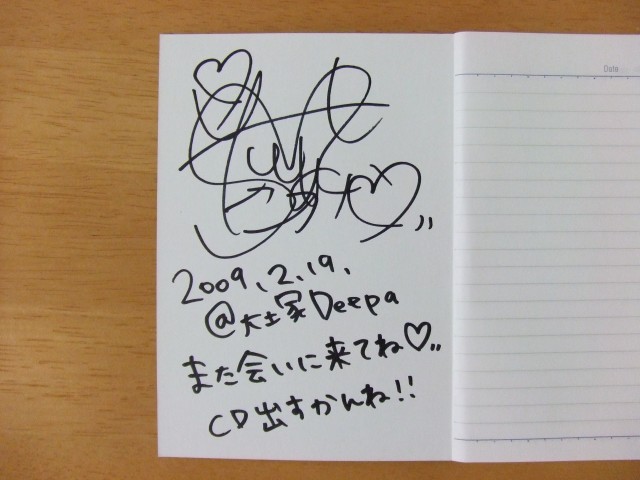 Date
2009.2.19.
@大土冢Deepa
また会いに来てね♡
CD出すかんね!!